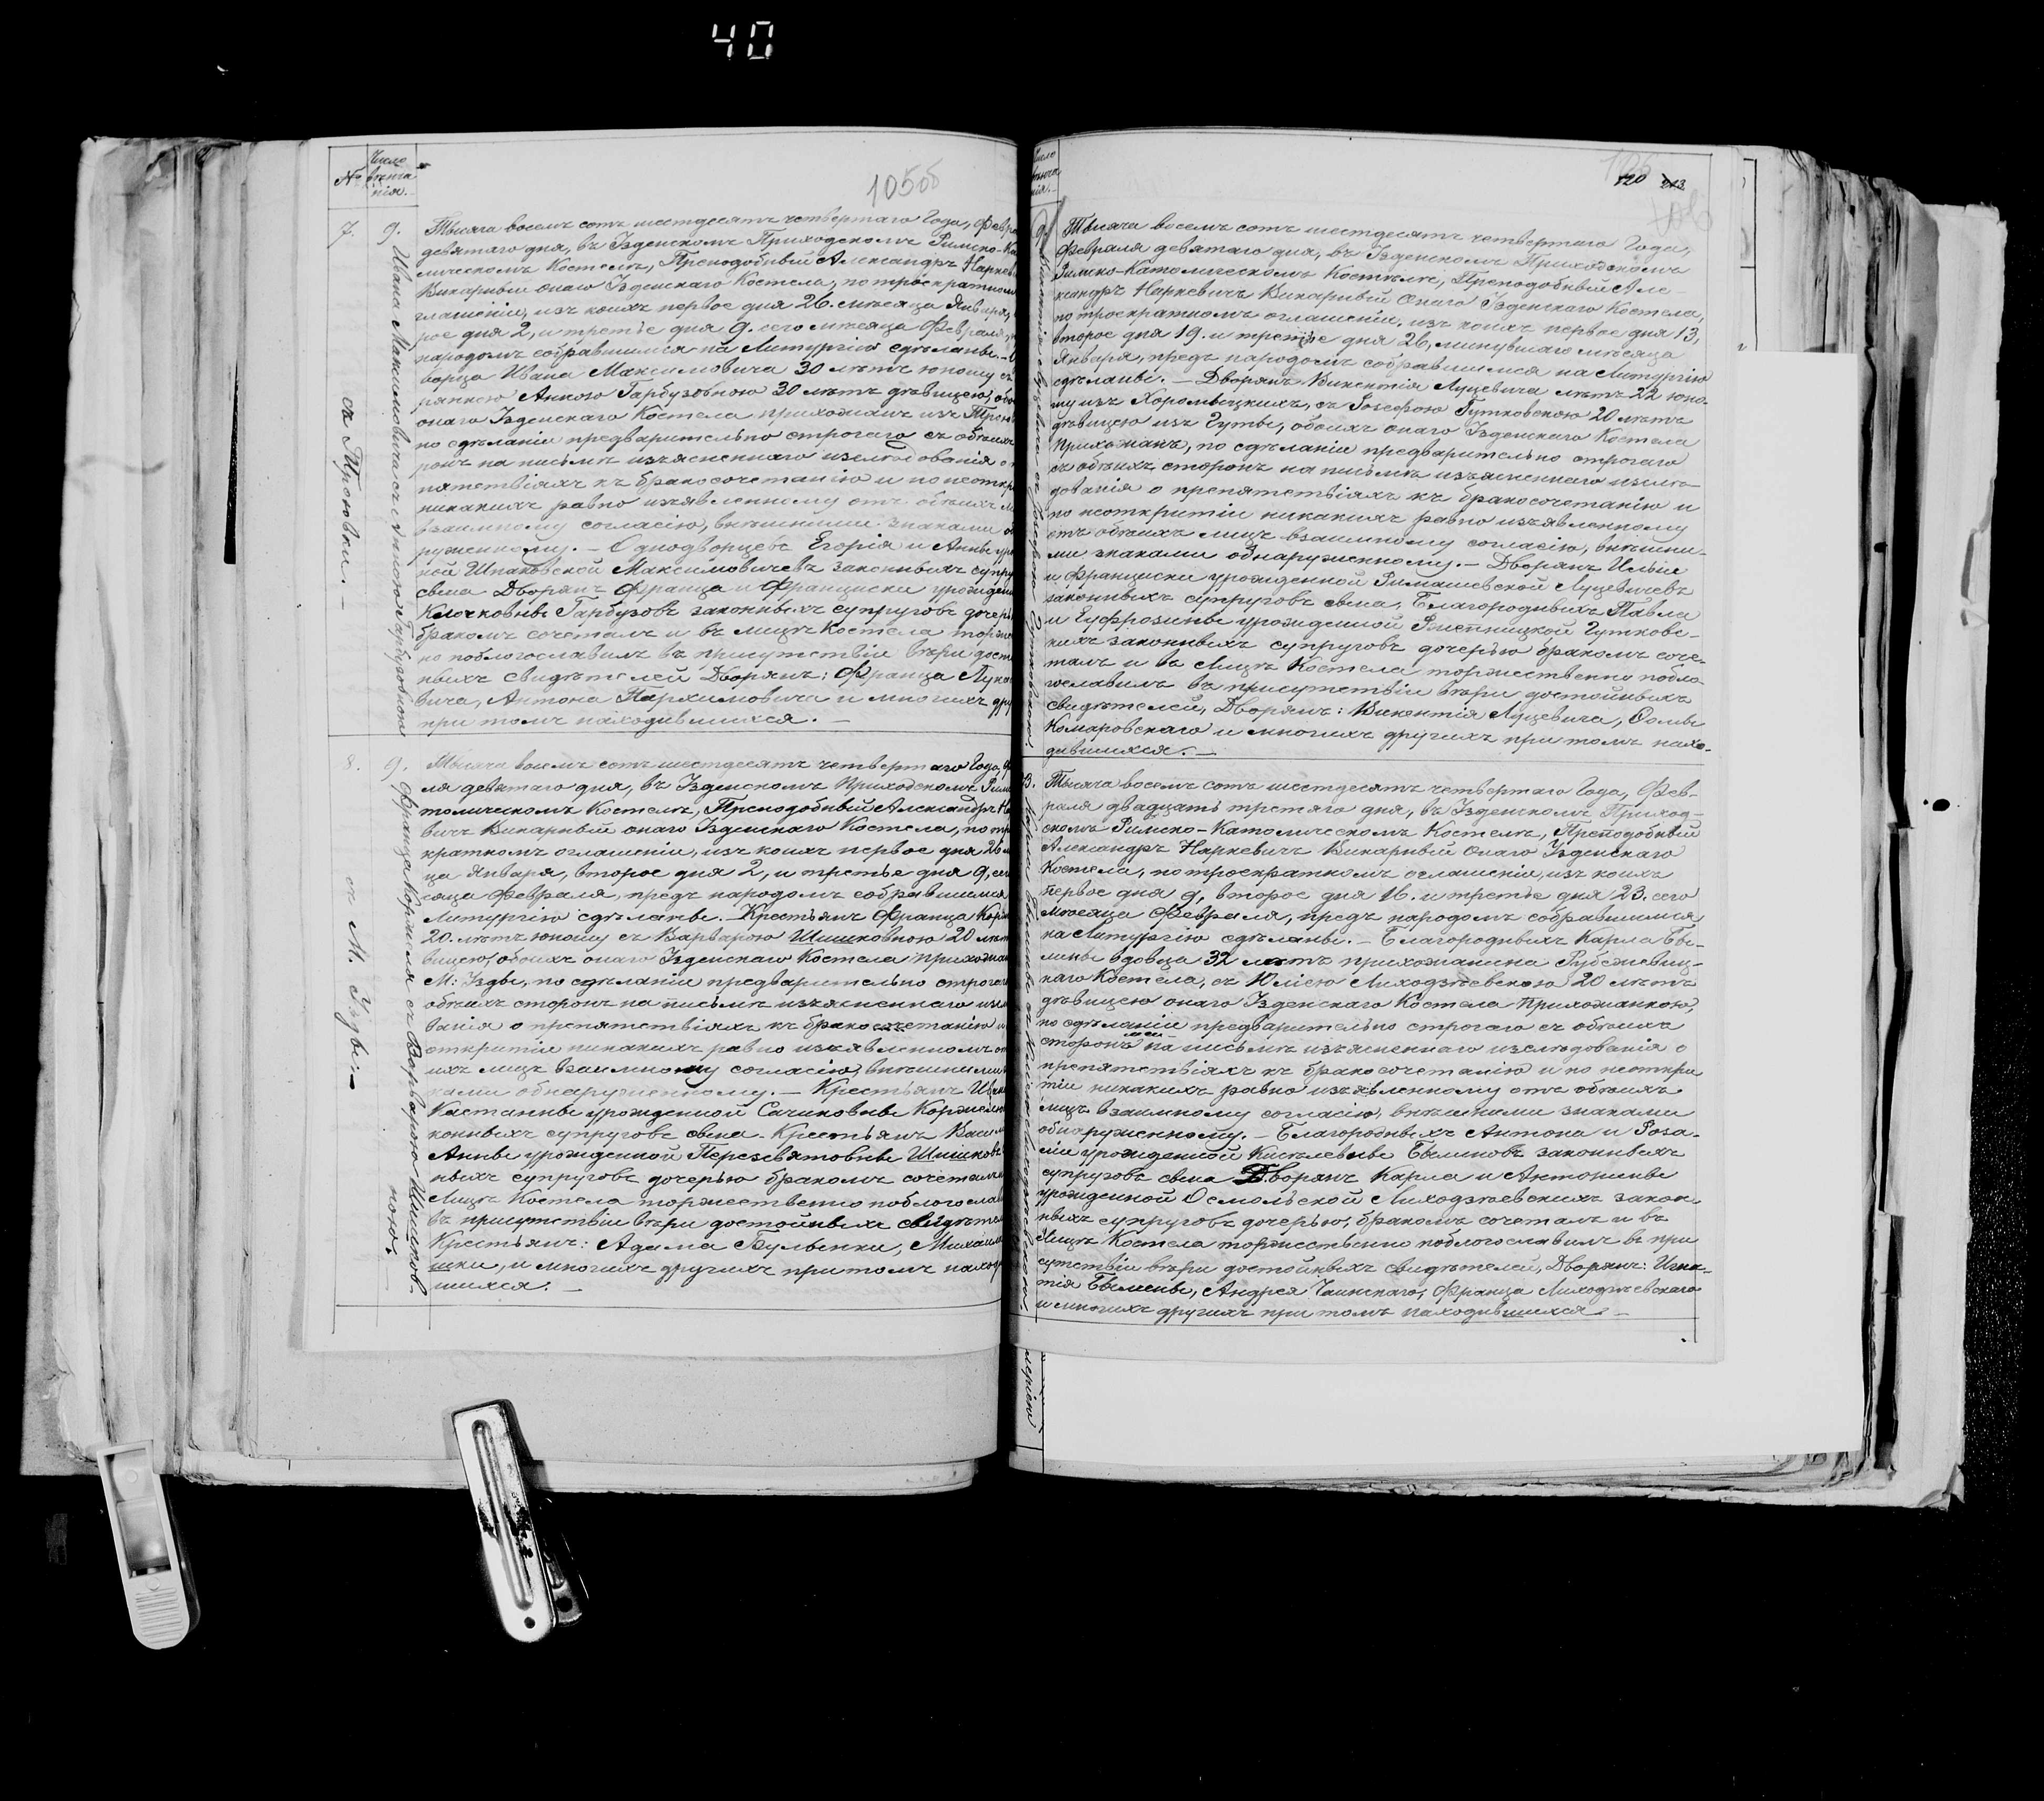 40
105об
№
Число
венча
нія.
7.
9.
Ивана Максимовича съ Анною Гарбузовною
съ Тронovки.
Тысяча восемь сотъ шестдесятъ четвертаго Года, Февра
девятаго дня, въ Узденскомъ Приходскомъ Римско-Ка
лическомъ Костелѣ, Преподобный Александръ Наркев
Викарный онаго Узденскаго Костела, по троекратном
глашеніи, изъ коихъ первое дня 26. мѣсяца Января,
рое дня 2, и третье дня 9. сего мѣсяца Февраля,
народомъ собравшимся на Литургію сдѣланы. –
ворца Ивана Максимовича 30 лѣтъ юношу съ
рянкою Анною Гарбузовною 30 лѣтъ дѣвицею, обо
онаго Узденскаго Костела прихожанъ изъ
по сдѣланіи предварительно строгаго съ обѣихъ
ронъ на письмѣ изъясненнаго изслѣдованія о
пятствіяхъ къ бракосочетанію и по неоткр
никакихъ равно изъявленному отъ обѣихъ
взаимному согласію, внѣшними знаками об
руженному. – Однодворцевъ Егорія и Анны уро
ной Шпаковской Максимовичевъ законныхъ супру
сына Дворянъ Франца и Франциски урожден
Клочковны Гарбузовъ законныхъ супруговъ дочерь
бракомъ сочеталъ и въ лицѣ Костела торже
но поблогославилъ въ присутствіи вѣри досто
ныхъ свидѣтелей Дворянъ: Франца
вича, Антона Нархимовича и многихъ дру
при томъ находившихся. –
8.
9.
Франца Корженя съ Варварою Шишков
ною. –
съ М. Узды. –
Тысяча восемь сотъ шестдесятъ четвертаго Года, Ф
ля девятаго дня, въ Узденскомъ Приходскомъ Рим
толическомъ Костелѣ, Преподобный Александръ На
вичъ Викарный онаго Узденскаго Костела, по тр
кратномъ оглашеніи, изъ коихъ первое дня 26 м
ца Января, второе дня 2, и третье дня 9, сег
сяца Февраля, предъ народомъ собравшимся
Литургію сдѣланы. – Крестьянъ Франца Корж
20. лѣтъ юношу съ Варварою Шишковною 20 лѣт
вицею, обоихъ онаго Узденскаго Костела прихожан
М: Узды, по сдѣланіи предварительно строгаго
обѣихъ сторонъ на письмѣ изъясненнаго изсл
ванія о препятствіяхъ къ бракосочетанію и
открытіи никакихъ равно изъявленномъ от
ихъ лицъ взаимному согласію, внѣшними
ками обнаруженному. – Крестьянъ Ивана
Костанцы урожденной Сачиковны Коржен
конныхъ супруговъ сына – Крестьянъ Васил
Анны урожденной Пересвятовны Шишков
ныхъ супруговъ дочерью бракомъ сочеталъ
Лицѣ Костела торжественно поблогослав
въ присутствіи вѣри достойныхъ свидѣте
Крестьянъ: Адама Бульенки, Михаила
шки, и многихъ другихъ при томъ наход
шихся. –
Число
венча
нія.
120
213
9
Тысяча восемь сотъ шестдесятъ четвертаго Года,
Февраля девятаго дня, въ Узденскомъ Приходскомъ
Римско-Католическомъ Костелѣ, Преподобный Але-
ксандръ Наркевичъ Викарный Онаго Узденскаго Костела,
по троекратномъ оглашеніи, изъ коихъ первое дня 13,
второе дня 19. и третье дня 26, минувшаго мѣсяца
Января, предъ народомъ собравшимся на Литургію
сдѣланы. – Дворянъ Викентія Луцевича лѣтъ 22 юно-
шу изъ Хоромыцкихъ, съ Розефою Гутковскою 20 лѣтъ
дѣвицею изъ Гуты, обоихъ онаго Узденскаго Костела
Прихожанъ, по сдѣланіи предварительно строгаго
съ обѣихъ сторонъ на письмѣ изъясненнаго изслѣ-
дованія о препятствіяхъ къ бракосочетанію и
по неоткрытіи никакихъ равно изъявленному
отъ обѣихъ лицъ взаимному согласію, внѣшни-
ми знаками обнаруженному. – Дворянъ Ильи
и Франциски урожденной Римашевской Луцевичевъ
законныхъ супруговъ сына, Благородныхъ Павла
и Еуфрозины урожденной Гутковс-
кихъ законныхъ супруговъ дочерью бракомъ соче-
талъ и въ Лицѣ Костела торжественно побло-
гославилъ въ присутствіи вѣри достойныхъ
свидѣтелей, Дворянъ: Викентія Луцевича, Фомы
Комаровскаго и многихъ другихъ при томъ нахо-
дившихся. –
3.
Тысяча восемь сотъ шестдесятъ четвертаго Года, Фев-
раля двадцать третяго дня, въ Узденскомъ Приход-
скомъ Римско-Католическомъ Костелѣ, Преподобный
Александръ Наркевичъ Викарный Онаго Узденскаго
Костела, по троекратномъ оглашеніи, изъ коихъ
первое дня 9, второе дня 16. и третье дня 23. сего
мѣсяца Февраля, предъ народомъ собравшимся
на Литургію сдѣланы. – Благородныхъ Карла Бы-
лины вдовца 32 лѣтъ прихожанина Рубежевиц-
каго Костела, съ Юліею Лиходзѣевскою 20 лѣтъ
дѣвицею онаго Узденскаго Костела Прихожанкою,
по сдѣланіи предварительно строгаго съ обѣихъ
сторонъ на письмѣ изъясненнаго изслѣдованія о
препятствіяхъ къ бракосочетанію и по неоткры
тіи никакихъ равно изъявленному отъ обѣихъ
лицъ взаимному согласію, внѣшними знаками
обнаруженному. – Благородныхъ Антона и Роза-
ліи урожденной Киселевны Былиновъ законныхъ
супруговъ сына Дворянъ Карла и Антонины
урожденной Осмольской Лиходзѣевскихъ закон-
ныхъ супруговъ дочерью, бракомъ сочеталъ и въ
Лицѣ Костела торжественно поблогославилъ въ при
сутствіи вѣри достойныхъ свидѣтелей, Дворянъ: Игна-
тія Былины, Андрея Чаинскаго, Франца Лиходзѣевскаго
и многихъ другихъ при томъ находившихся –